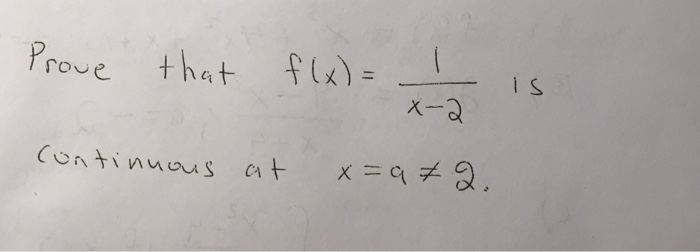 Prove that f(x) = 1/(x-2) is
continuous at x = a ≠ 2.